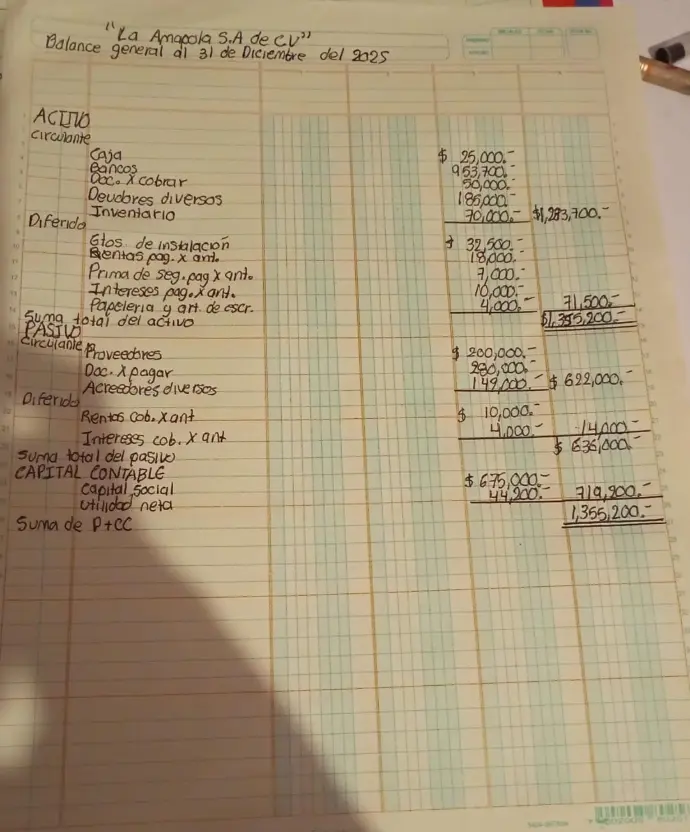 "La Amapola S.A de CV"
Balance general al 31 de Diciembre del 2025
ACTIVO
Circulante
Caja $ 25,000.-
Bancos 953,700.-
Doc. X cobrar 50,000.-
Deudores diversos 185,000.-
Inventario 70,000.- $1,283,700.-
Diferido
Gtos. de instalación $ 32,500.-
Rentas pag. x ant. 18,000.-
Prima de seg. pag x ant. 7,000.-
Intereses pag. x ant. 10,000.-
Papeleria y art. de escr. 4,000.- 71,500.-
Suma total del activo $1,355,200.-
PASIVO
Circulante
Proveedores $ 200,000.-
Doc. X pagar 280,000.-
Acreedores diversos 142,000.- $ 622,000.-
Diferido
Rentas cob. X ant $ 10,000.-
Intereses cob. X ant 4,000.- 14,000.-
Suma total del pasivo $ 636,000.-
CAPITAL CONTABLE
Capital Social $ 675,000.-
Utilidad neta 44,200.- 719,200.-
Suma de P+CC 1,355,200.-